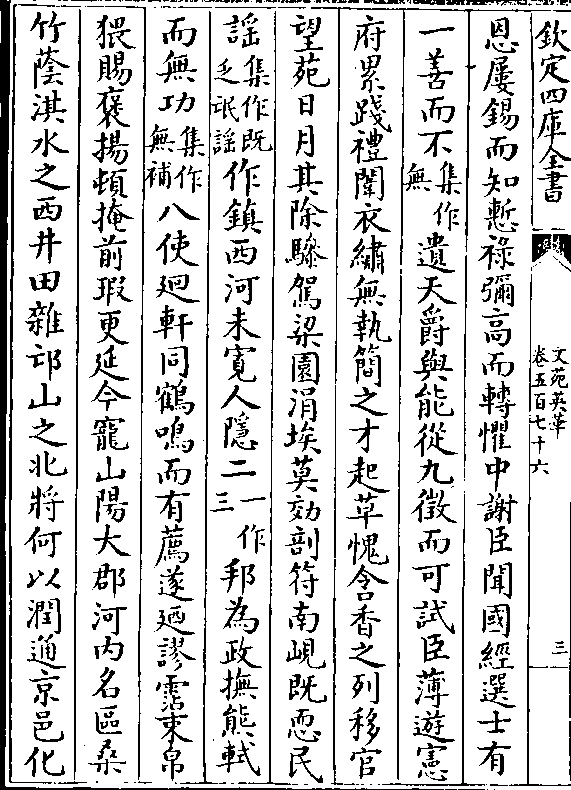 欽定四庫全書
文苑英華
卷五百七十六
三
恩屢錫而知慙祿彌高而轉懼中謝臣聞國經選士有
一善而不集作無遺天爵與能從九徵而可試臣薄遊憲
府累踐禮闈衣繡無執簡之才起草愧含香之列移官
望苑日月其除驂駕梁園涓埃莫効剖符南峴既恧民
謡集作既乏氓謡作鎮西河未寛人隱二一作三邦為政撫熊軾
而無功集作無補八使廻軒同鶴鳴而有薦遂廼謬霑束帛
猥賜褒揚頓掩前瑕更延今寵山陽大郡河内名區桑
竹蔭淇水之西井田雜邙山之北將何以潤通京邑化